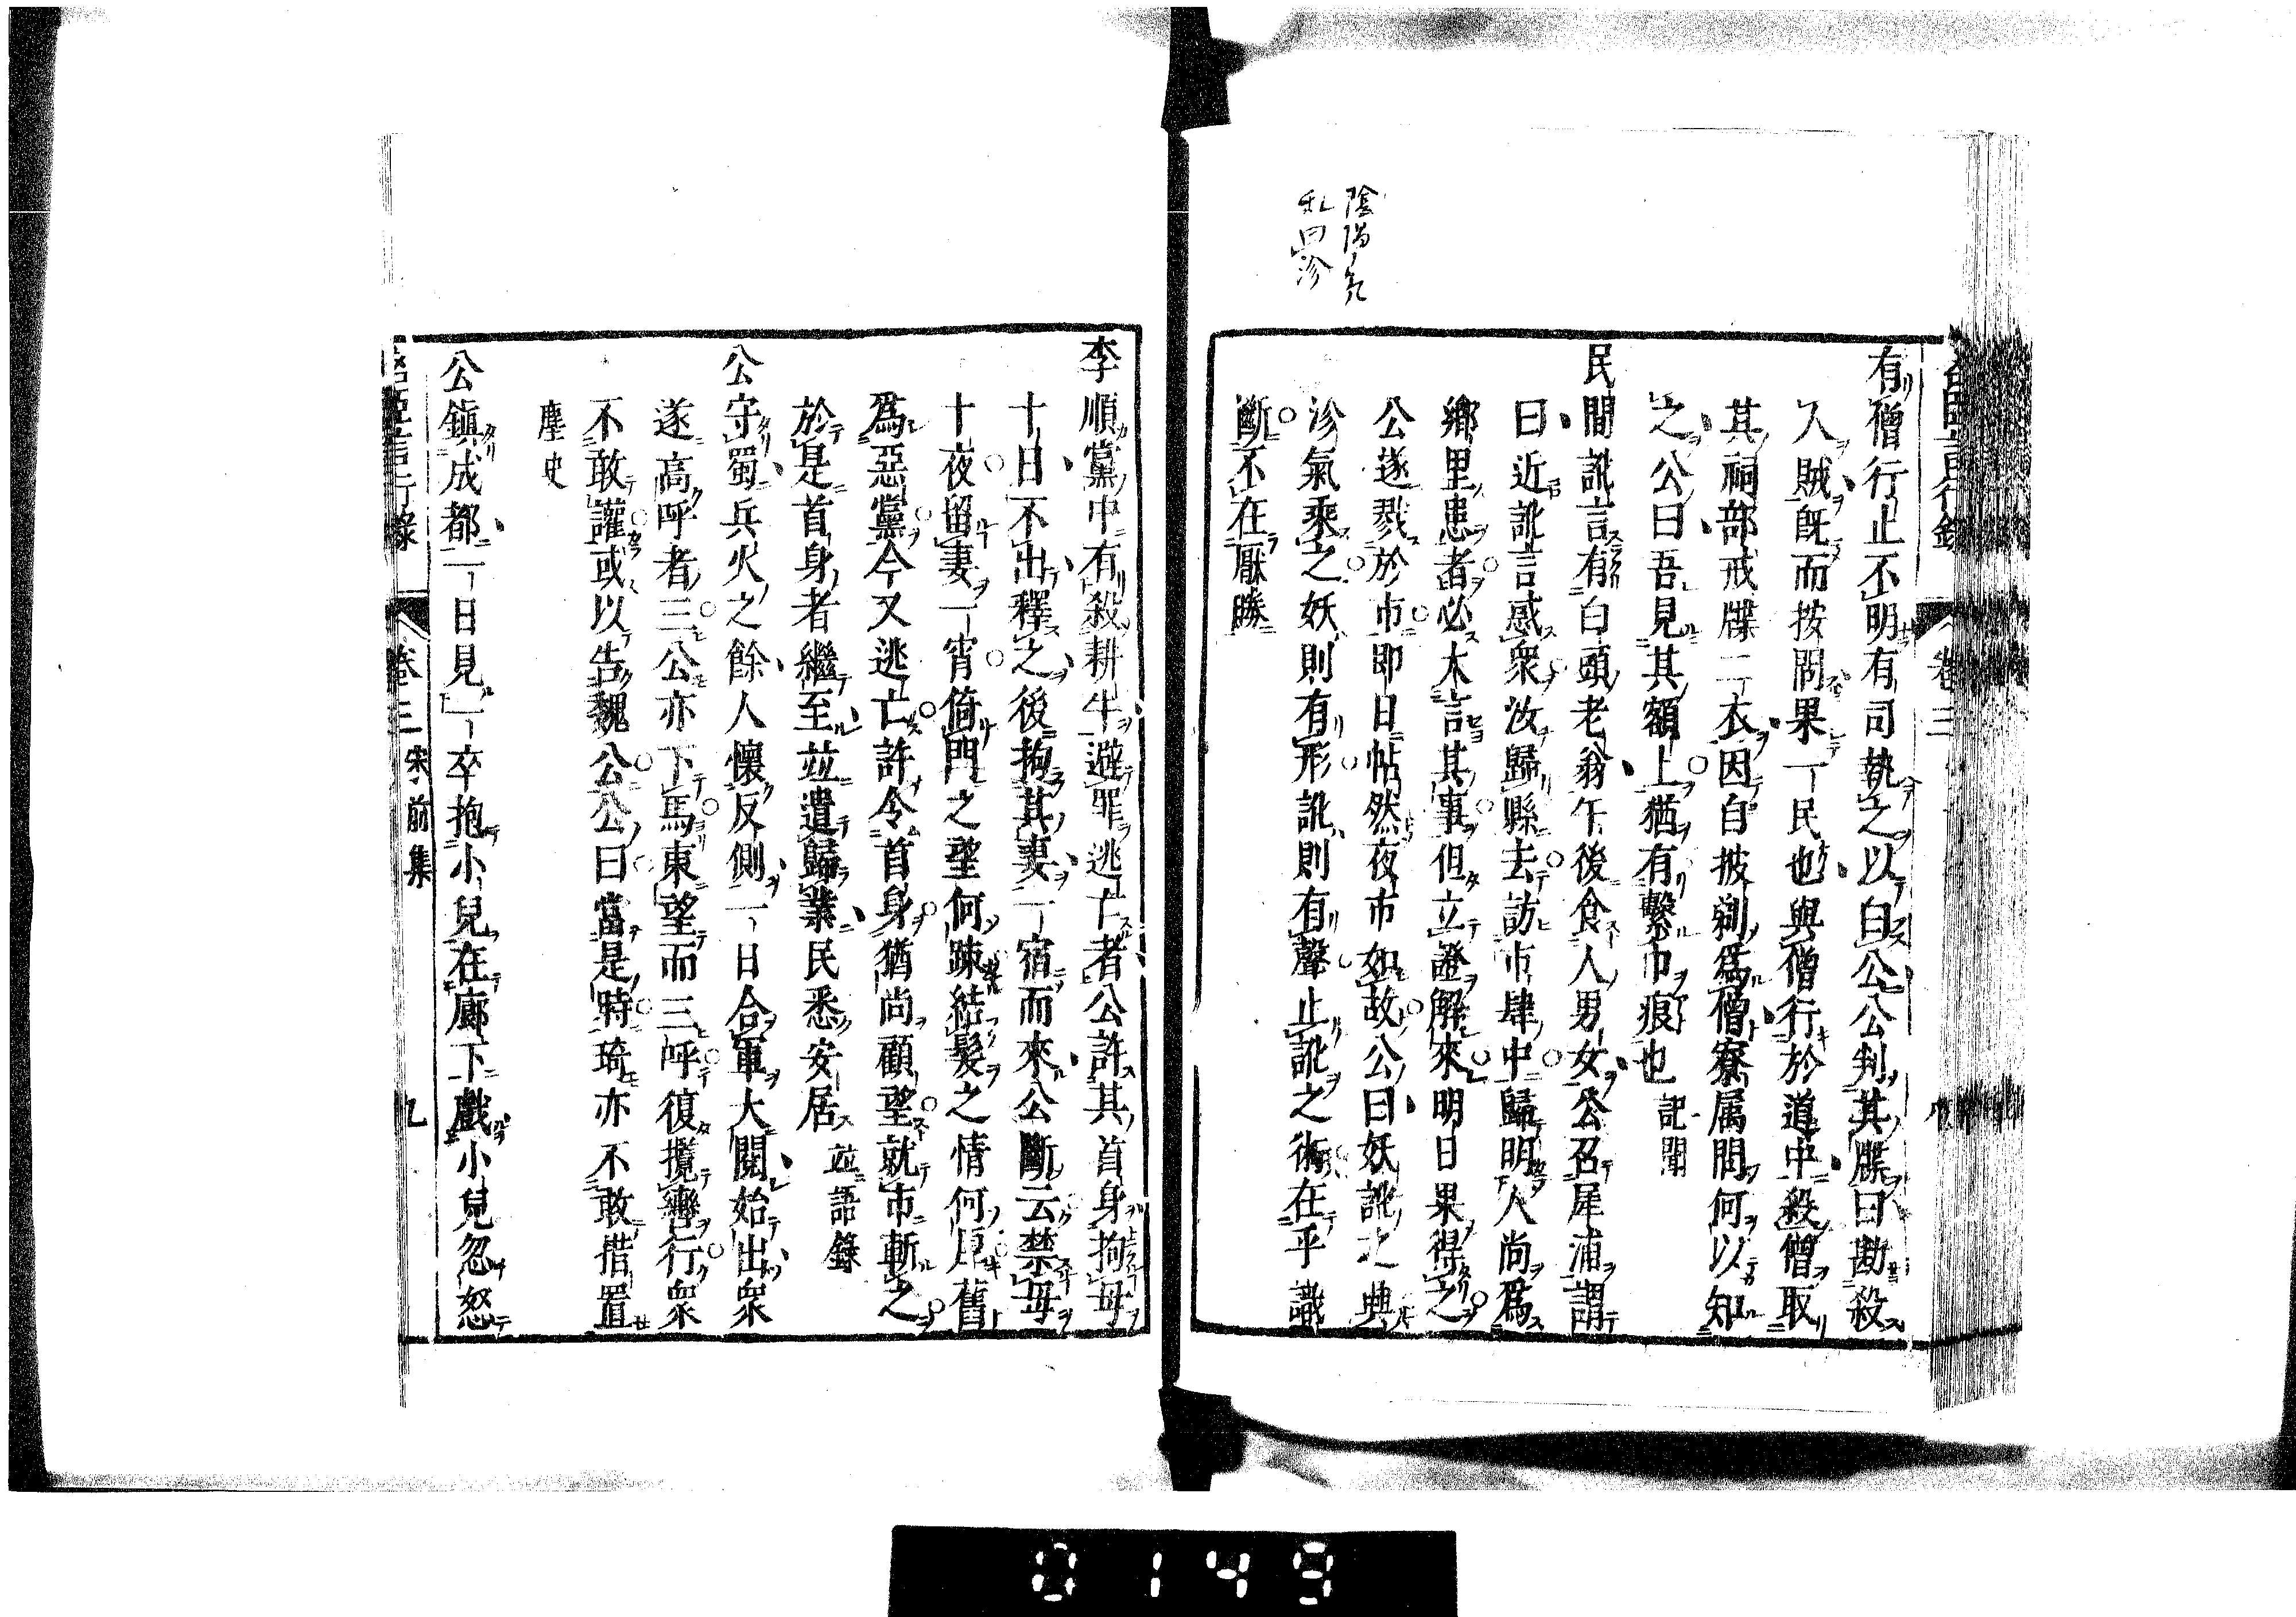 陰陽氣
乱曰沴
有僧行止不明有司執之以白公公判其牒曰勘殺
人賊旣而按問果一民也與僧行於道中殺僧取
其祠部戒牒二衣因自披剃爲僧寮属問何以知
之公曰吾見其額上猶有繫巾痕也 記聞
民間訛言有白頭老翁午後食人男女公召犀浦謂
曰近訛言惑衆汝歸縣去訪市肆中歸明人尚爲
鄉里患者必大言其事但立證解來明日果得之
公遂戮於市即日帖然夜市如故公曰妖訛之興
沴氣乘之妖則有形訛則有聲止訛之術在乎識
斷不在厭勝
李順黨中有殺耕牛避罪逃亡者公許其首身拘母
十日不出釋之後拘其妻一宿而來公斷云禁母
十夜留妻一宵倚門之望何踈結髮之情何厚舊
爲惡黨今又逃亡許令首身猶尚顧望就市斬之
於是首身者繼至並遣歸業民悉安居 並語錄
公守蜀兵火之餘人懷反側一日合軍大閱始出衆
遂高呼者三公亦下馬東望而三呼復攬轡行衆
不敢讙或以告魏公公曰當是時琦亦不敢措置
塵史
公鎮成都一日見一卒抱小兒在廊下戲小兒忽怒
名臣言行錄 卷三 宋前集 九
0149